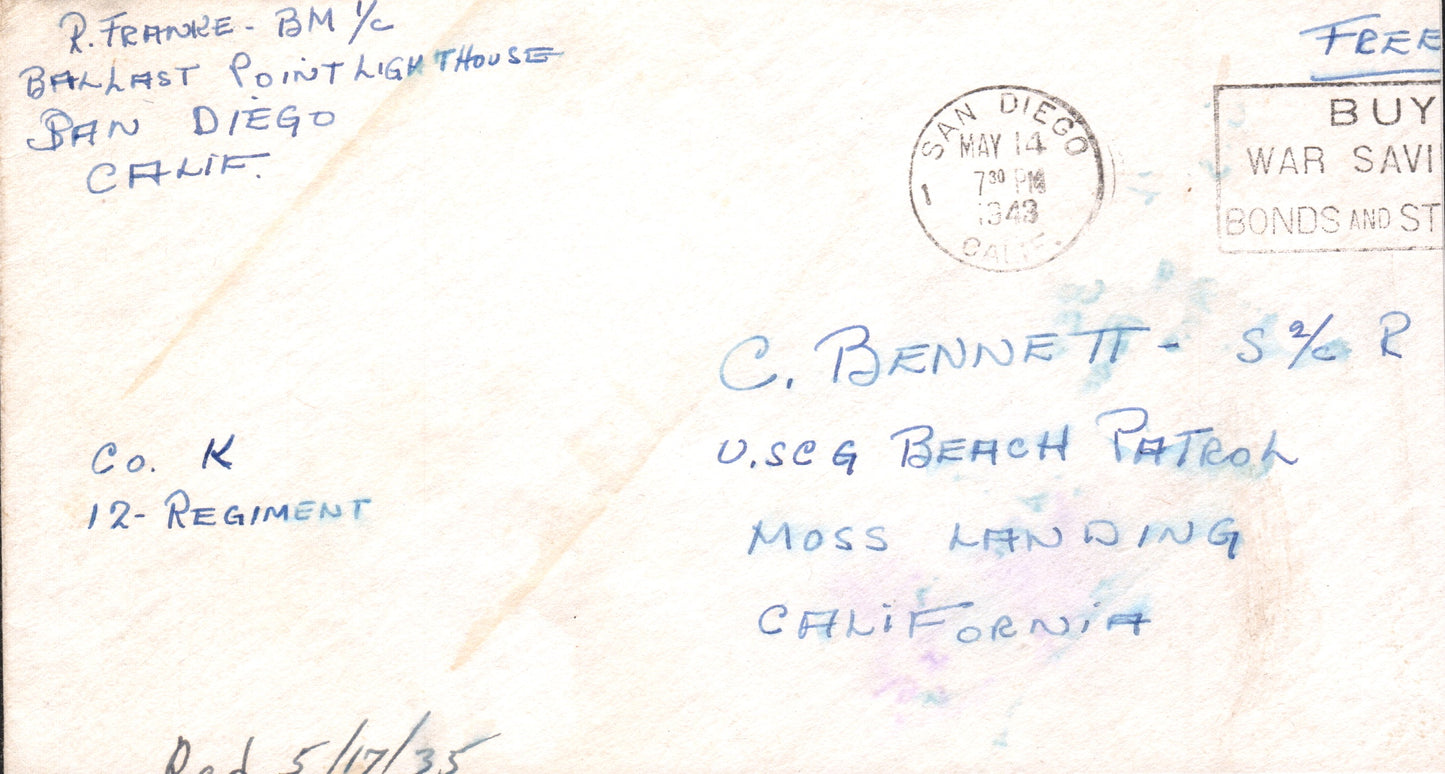 R. FRANKE - BM 1/c
BALLAST POINT LIGHTHOUSE
SAN DIEGO
CALIF.
FREE
SAN DIEGO
1
MAY 14
7 30 PM
1943
CALIF.
BUY
WAR SAVI
BONDS AND ST
C. BENNETT - S 2/c R
U.SCG BEACH PATROL
MOSS LANDING
CALIFORNIA
Co. K
12- REGIMENT
Rcd 5/17/35